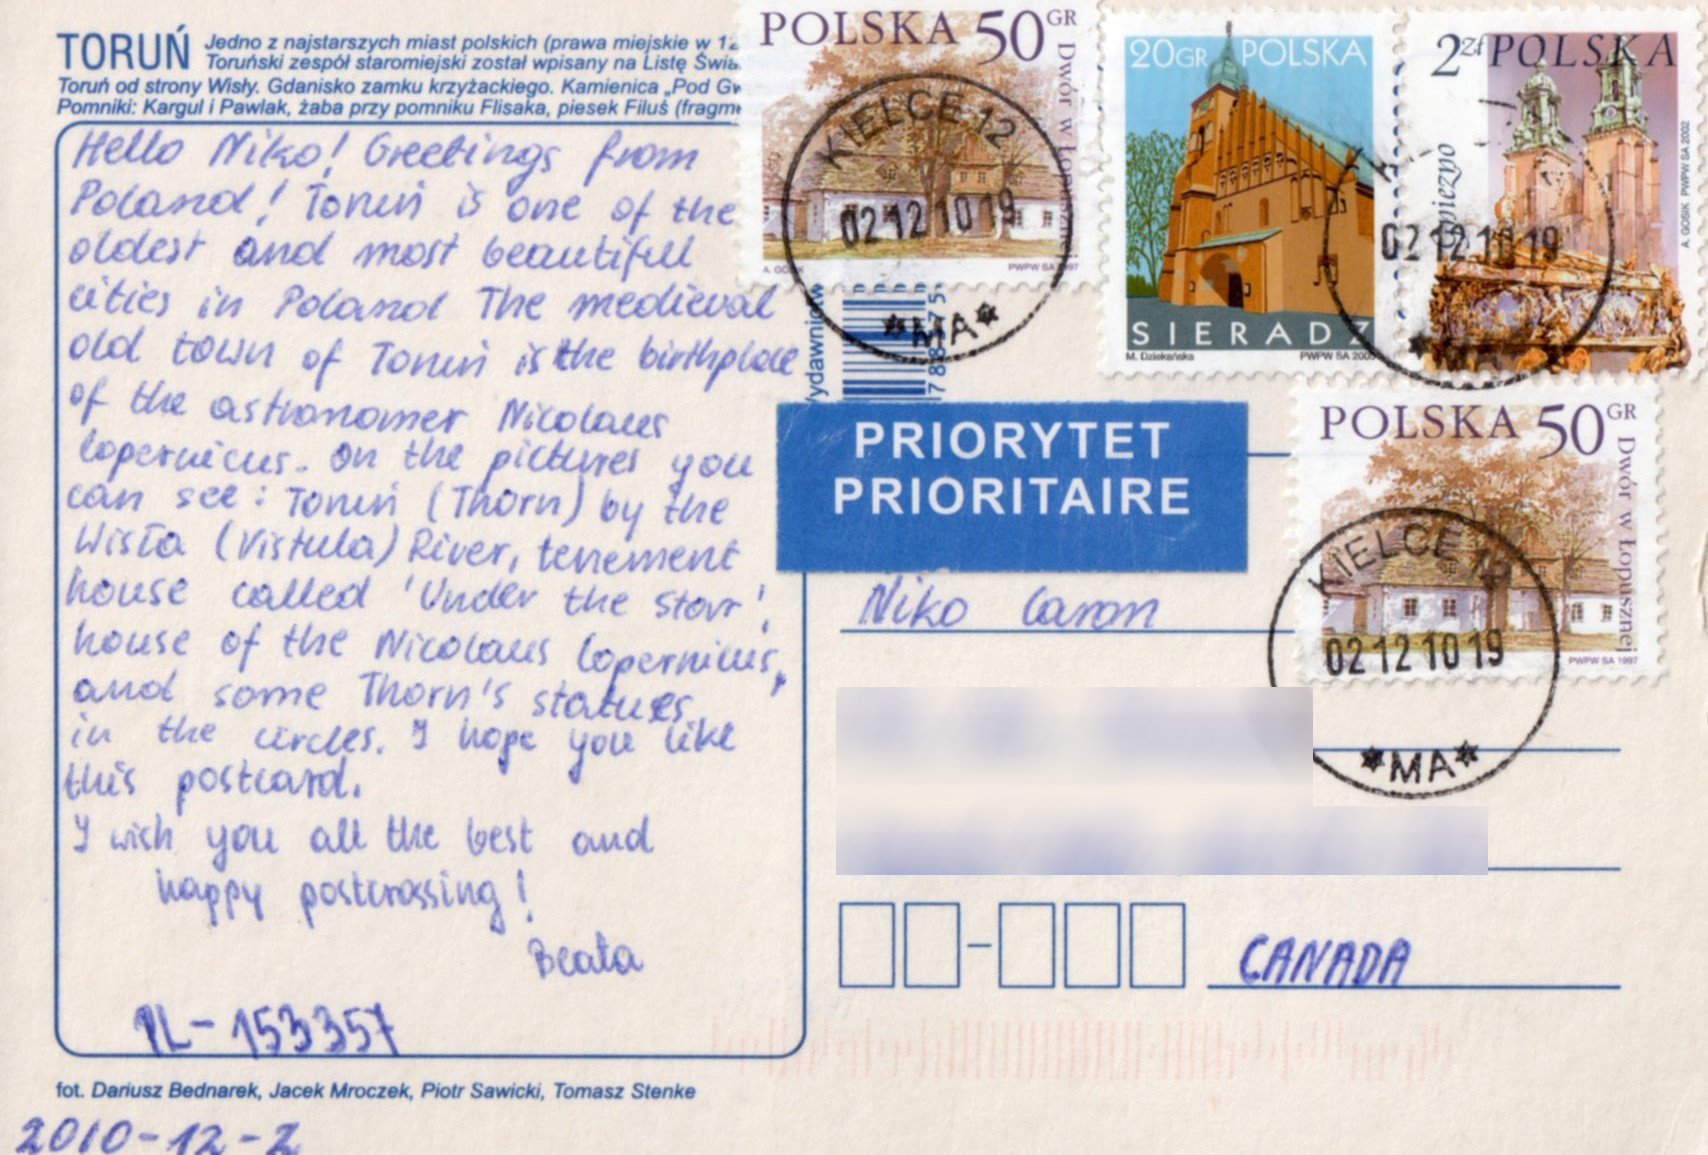 TORUŃ
Jedno z najstarszych miast polskich (prawa miejskie w 12
Toruński zespół staromiejski został wpisany na Listę Świa
Toruń od strony Wisły. Gdanisko zamku krzyżackiego. Kamienica „Pod Gw
Pomniki: Kargul i Pawlak, żaba przy pomniku Flisaka, piesek Filuś (fragm
Hello Niko! Greetings from
Poland! Toruń is one of the
oldest and most beautifull
cities in Poland The medieval
old town of Toruń is the birthplace
of the astronomer Nicolaus
Copernicus. On the pictures you
can see: Toruń (Thorn) by the
Wisła (Vistula) River, tenement
house called 'Under the star',
house of the Nicolaus Copernicus,
and some Thorn's statues
in the circles. I hope you like
this postcard.
I wish you all the best and
happy postcrossing!
Beata
PL-153357
fot. Dariusz Bednarek, Jacek Mroczek, Piotr Sawicki, Tomasz Stenke
2010-12-2
POLSKA 50GR
Dwór w Łopusznej
PWPW SA 1997
KIELCE 12
02 12 10 19
*MA*
20GR POLSKA
SIERADZ
M. Dziekańska
PWPW SA 2005
2zł POLSKA
A. GOSIK PWPW SA 2002
02 12 10 19
ydawnictw
PRIORYTET
PRIORITAIRE
POLSKA 50GR
Dwór w Łopusznej
PWPW SA 1997
KIELCE 12
02 12 10 19
*MA*
Niko Caron
CANADA